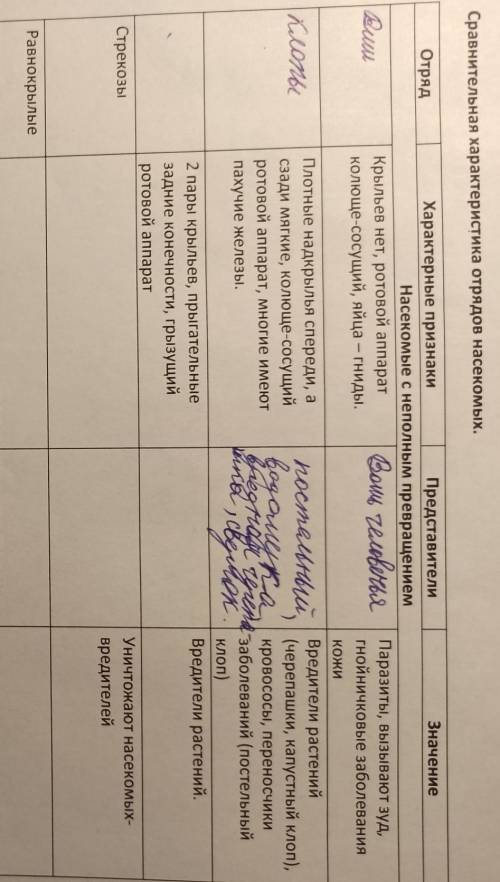 Сравнительная характеристика отрядов насекомых.
Отряд
Характерные признаки
Представители
Значение
Насекомые с неполным превращением
Вши
Крыльев нет, ротовой аппарат
колюще-сосущий, яйца – гниды.
Вошь человечья
Паразиты, вызывают зуд,
гнойничковые заболевания
кожи
Клопы
Плотные надкрылья спереди, а
сзади мягкие, колюще-сосущий
ротовой аппарат, многие имеют
пахучие железы.
постельный,
водомерка
вредная черепа
Вредители растений
(черепашки, капустный клоп),
кровососы, переносчики
заболеваний (постельный
клоп)
2 пары крыльев, прыгательные
задние конечности, грызущий
ротовой аппарат
Вредители растений.
Стрекозы
Уничтожают насекомых-
вредителей
Равнокрылые